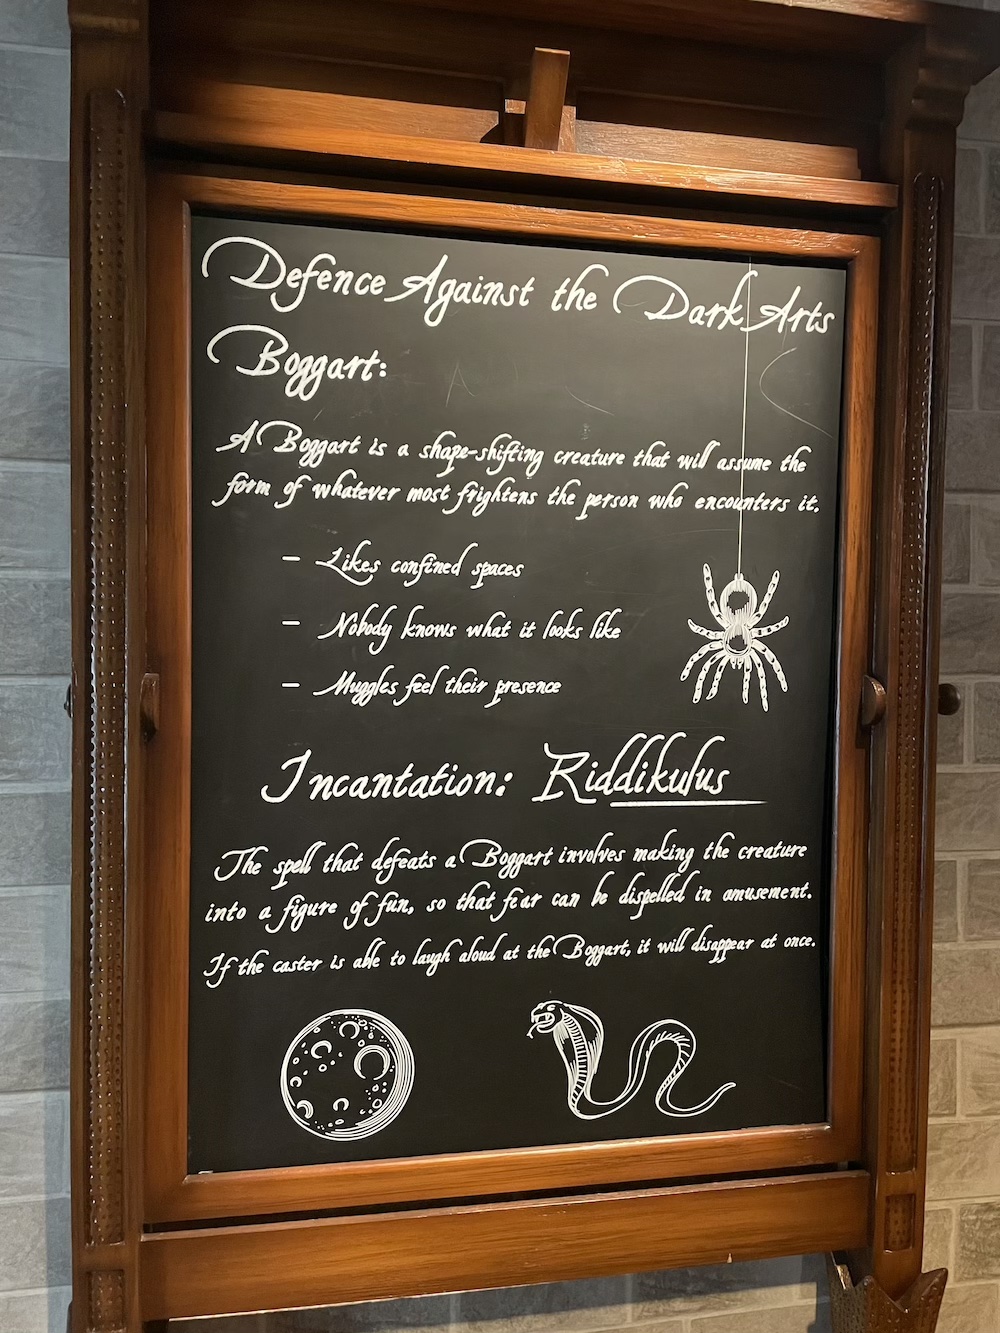 Defence Against the Dark Arts
Boggart:
A Boggart is a shape-shifting creature that will assume the
form of whatever most frightens the person who encounters it.
- Likes confined spaces
- Nobody knows what it looks like
- Muggles feel their presence
Incantation: Riddikulus
The spell that defeats a Boggart involves making the creature
into a figure of fun, so that fear can be dispelled in amusement.
If the caster is able to laugh aloud at the Boggart, it will disappear at once.